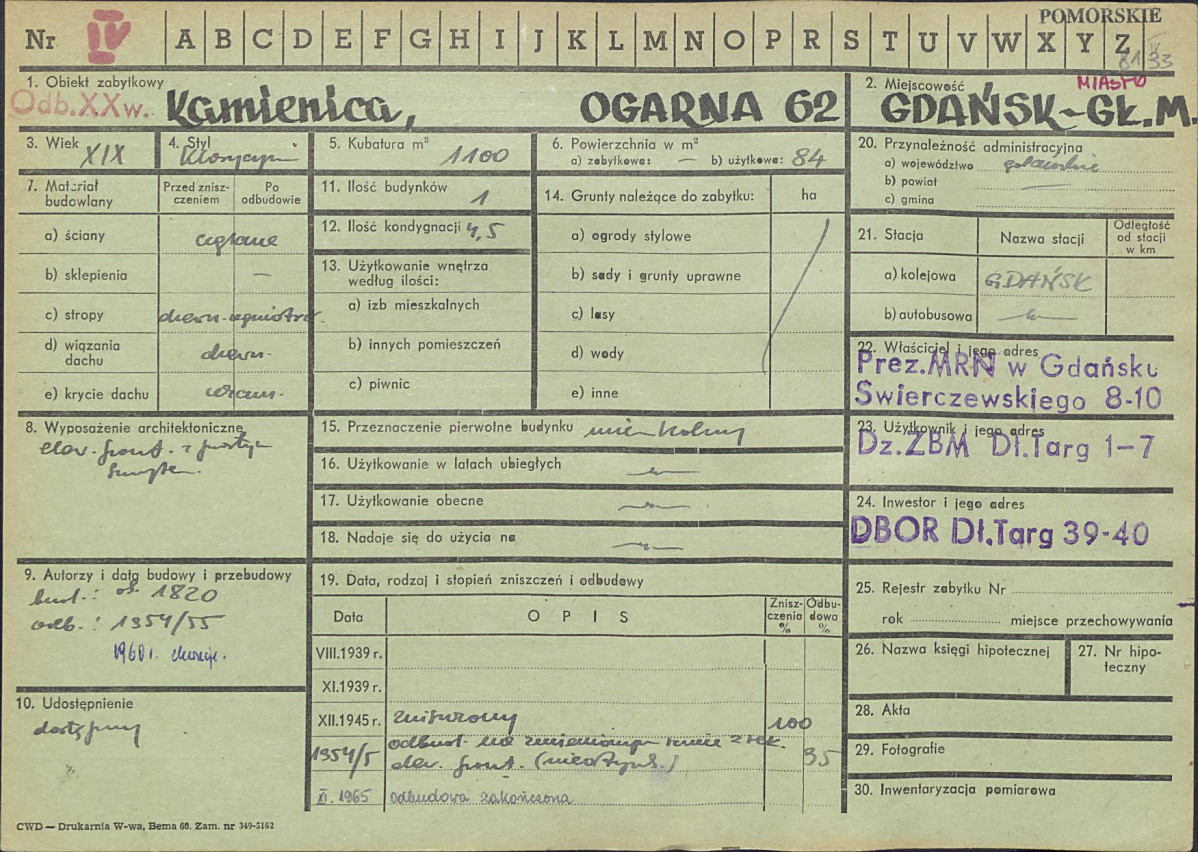 POMORSKIE
Nr IV A B C D E F G H I J K L M N O P R S T U V W X Y Z
1. Obiekt zabytkowy
Odb. XX w. Kamienica, OGARNA 62
2. Miejscowość MIASTO
GDAŃSK-GŁ.M.
3. Wiek XIX
4. Styl
5. Kubatura m³ 1100
6. Powierzchnia w m²
a) zabytkowa: — b) użytkowa: 84
7. Materiał budowlany
Przed zniszczeniem
Po odbudowie
a) ściany ceglane
b) sklepienia —
c) stropy drewn.
d) wiązania dachu drewn.
e) krycie dachu
8. Wyposażenie architektoniczne
elew. front. z
9. Autorzy i datą budowy i przebudowy
bud.: ok. 1820
odb.: 1954/55
1960 r.
10. Udostępnienie
dostępny
11. Ilość budynków 1
12. Ilość kondygnacji 4,5
13. Użytkowanie wnętrza według ilości:
a) izb mieszkalnych
b) innych pomieszczeń
c) piwnic
14. Grunty należące do zabytku: ha
a) ogrody stylowe
b) sady i grunty uprawne
c) lasy
d) wody
e) inne
15. Przeznaczenie pierwotne budynku mieszkalny
16. Użytkowanie w latach ubiegłych
17. Użytkowanie obecne
18. Nadaje się do użycia na
19. Data, rodzaj i stopień zniszczeń i odbudowy
Data OPIS Zniszczenia % Odbudowa %
VIII.1939 r.
XI.1939 r.
XII.1945 r. zniszczony 100
1954/5 odbud. na zmienionym rzucie z rek.
elew. front. 95
XI. 1965 odbudowa zakończona
20. Przynależność administracyjna
a) województwo gdańskie
b) powiat —
c) gmina
21. Stacja Nazwa stacji Odległość od stacji w km
a) kolejowa GDAŃSK
b) autobusowa
22. Właściciel i jego adres
Prez.MRN w Gdańsku
Swierczewskiego 8-10
23. Użytkownik i jego adres
Dz.ZBM Dł.Targ 1-7
24. Inwestor i jego adres
DBOR Dł.Targ 39-40
25. Rejestr zabytku Nr
rok miejsce przechowywania
26. Nazwa księgi hipotecznej
27. Nr hipoteczny
28. Akta
29. Fotografie
30. Inwentaryzacja pomiarowa
CWD — Drukarnia W-wa, Bema 60. Zam. nr 349-5162